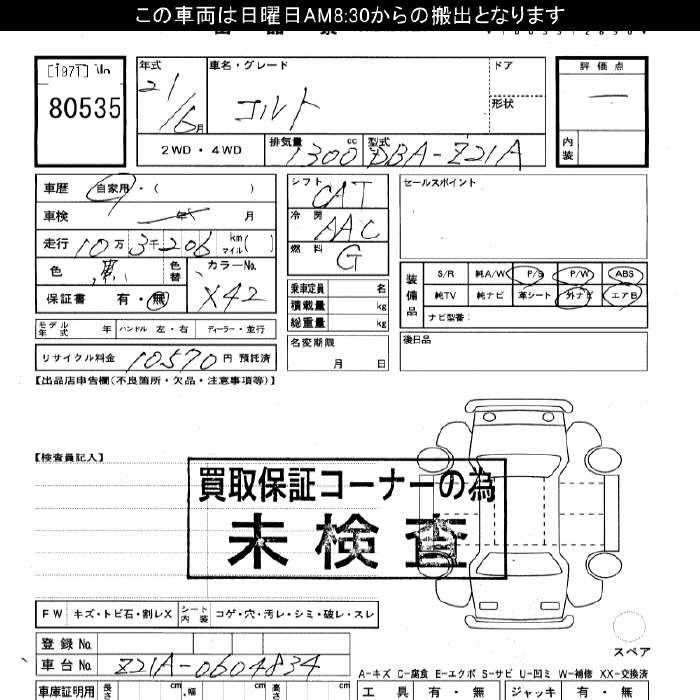 この車両は日曜日AM8:30からの搬出となります
[1971] No
80535
年式 車名・グレード ドア 評価点
21/6月 コルト 形状 —
2WD・4WD 排気量 1300 cc 型式 DBA-Z21A 内装
車歴 自家用・( ) シフト CAT セールスポイント
車検 年 月 冷房 AAC
走行 10万3千206 km マイル( ) 燃料 G
色 黒 色替 カラーNo. X42
保証書 有・無
乗車定員 名
積載量 kg
総重量 kg
装備品 S/R 純A/W P/S P/W ABS
純TV 純ナビ 革シート 外ナビ エアB
ナビ型番:
モデル年式 年 ハンドル 左・右 ディーラー・並行
名変期限 月 日
後日品
リサイクル料金 10570 円 預託済
【出品店申告欄(不良箇所・欠品・注意事項等)】
【検査員記入】
買取保証コーナーの為
未検査
FW キズ・トビ石・割レX シート内装 コゲ・穴・汚レ・シミ・破レ・スレ
スペア
登録 No.
車台 No. Z21A-0604834
A-キズ C-腐食 E-エクボ S-サビ U-凹ミ W-補修 XX-交換済
車庫証明用 長さ cm 幅 cm 高さ cm 工具 有・無 ジャッキ 有・無